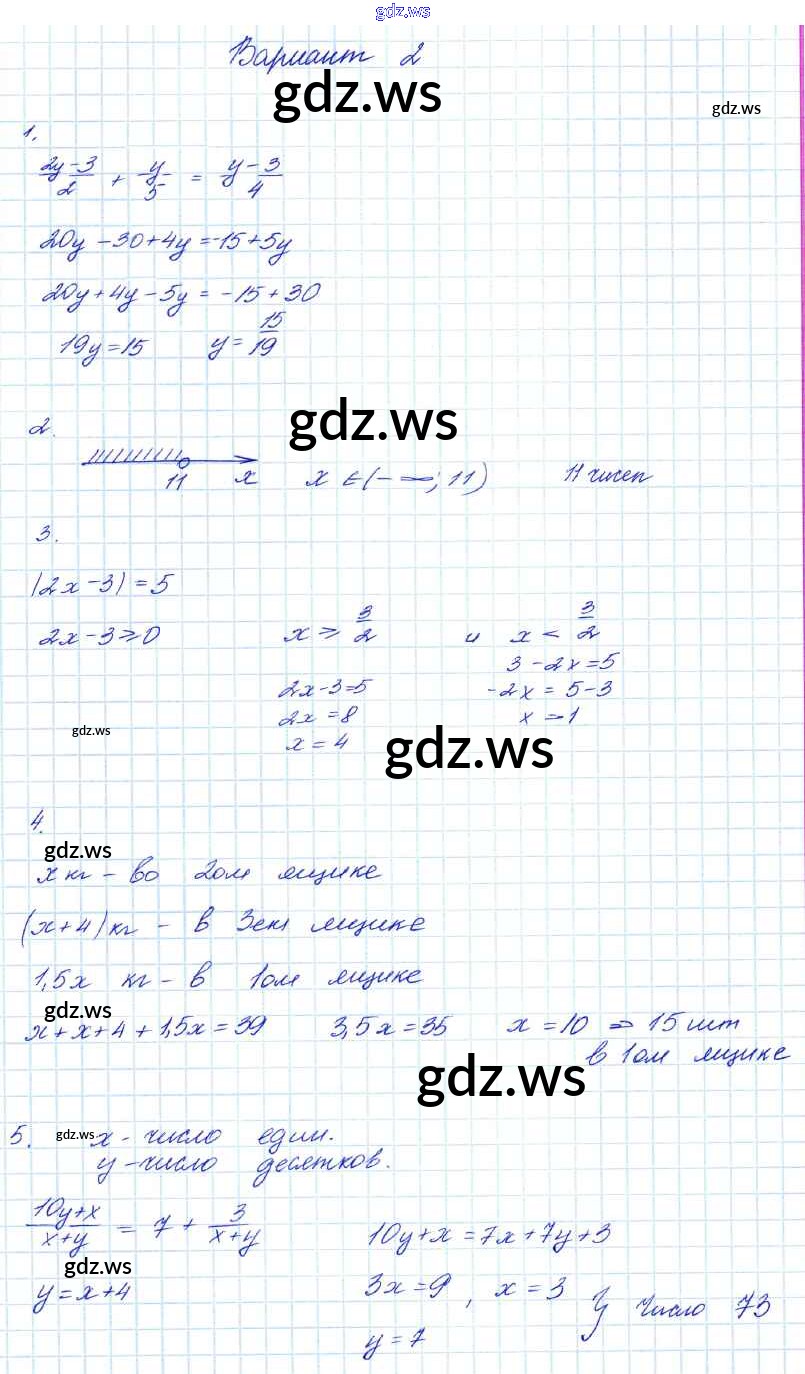 gdz.ws
Вариант 2
gdz.ws
gdz.ws
1.
(2y-3)/2 + y/5 = (y-3)/4
20y - 30 + 4y = -15 + 5y
20y + 4y - 5y = -15 + 30
19y = 15 y = 15/19
gdz.ws
2.
11 x x ∈ (-∞; 11) 11 чисел
3.
|2x - 3| = 5
2x - 3 ≥ 0 x ≥ 3/2 и x < 3/2
3 - 2x = 5
2x - 3 = 5 -2x = 5 - 3
2x = 8 x = -1
gdz.ws
x = 4
gdz.ws
4.
gdz.ws
x кг - во 2ом ящике
(x+4) кг - в 3ем ящике
1,5x кг - в 1ом ящике
gdz.ws
x + x + 4 + 1,5x = 39 3,5x = 35 x = 10 ⇒ 15 шт
в 1ом ящике
gdz.ws
5. gdz.ws x - число един.
y - число десятков.
(10y+x)/(x+y) = 7 + 3/(x+y) 10y + x = 7x + 7y + 3
gdz.ws
y = x + 4 3x = 9, x = 3 } число 73
y = 7